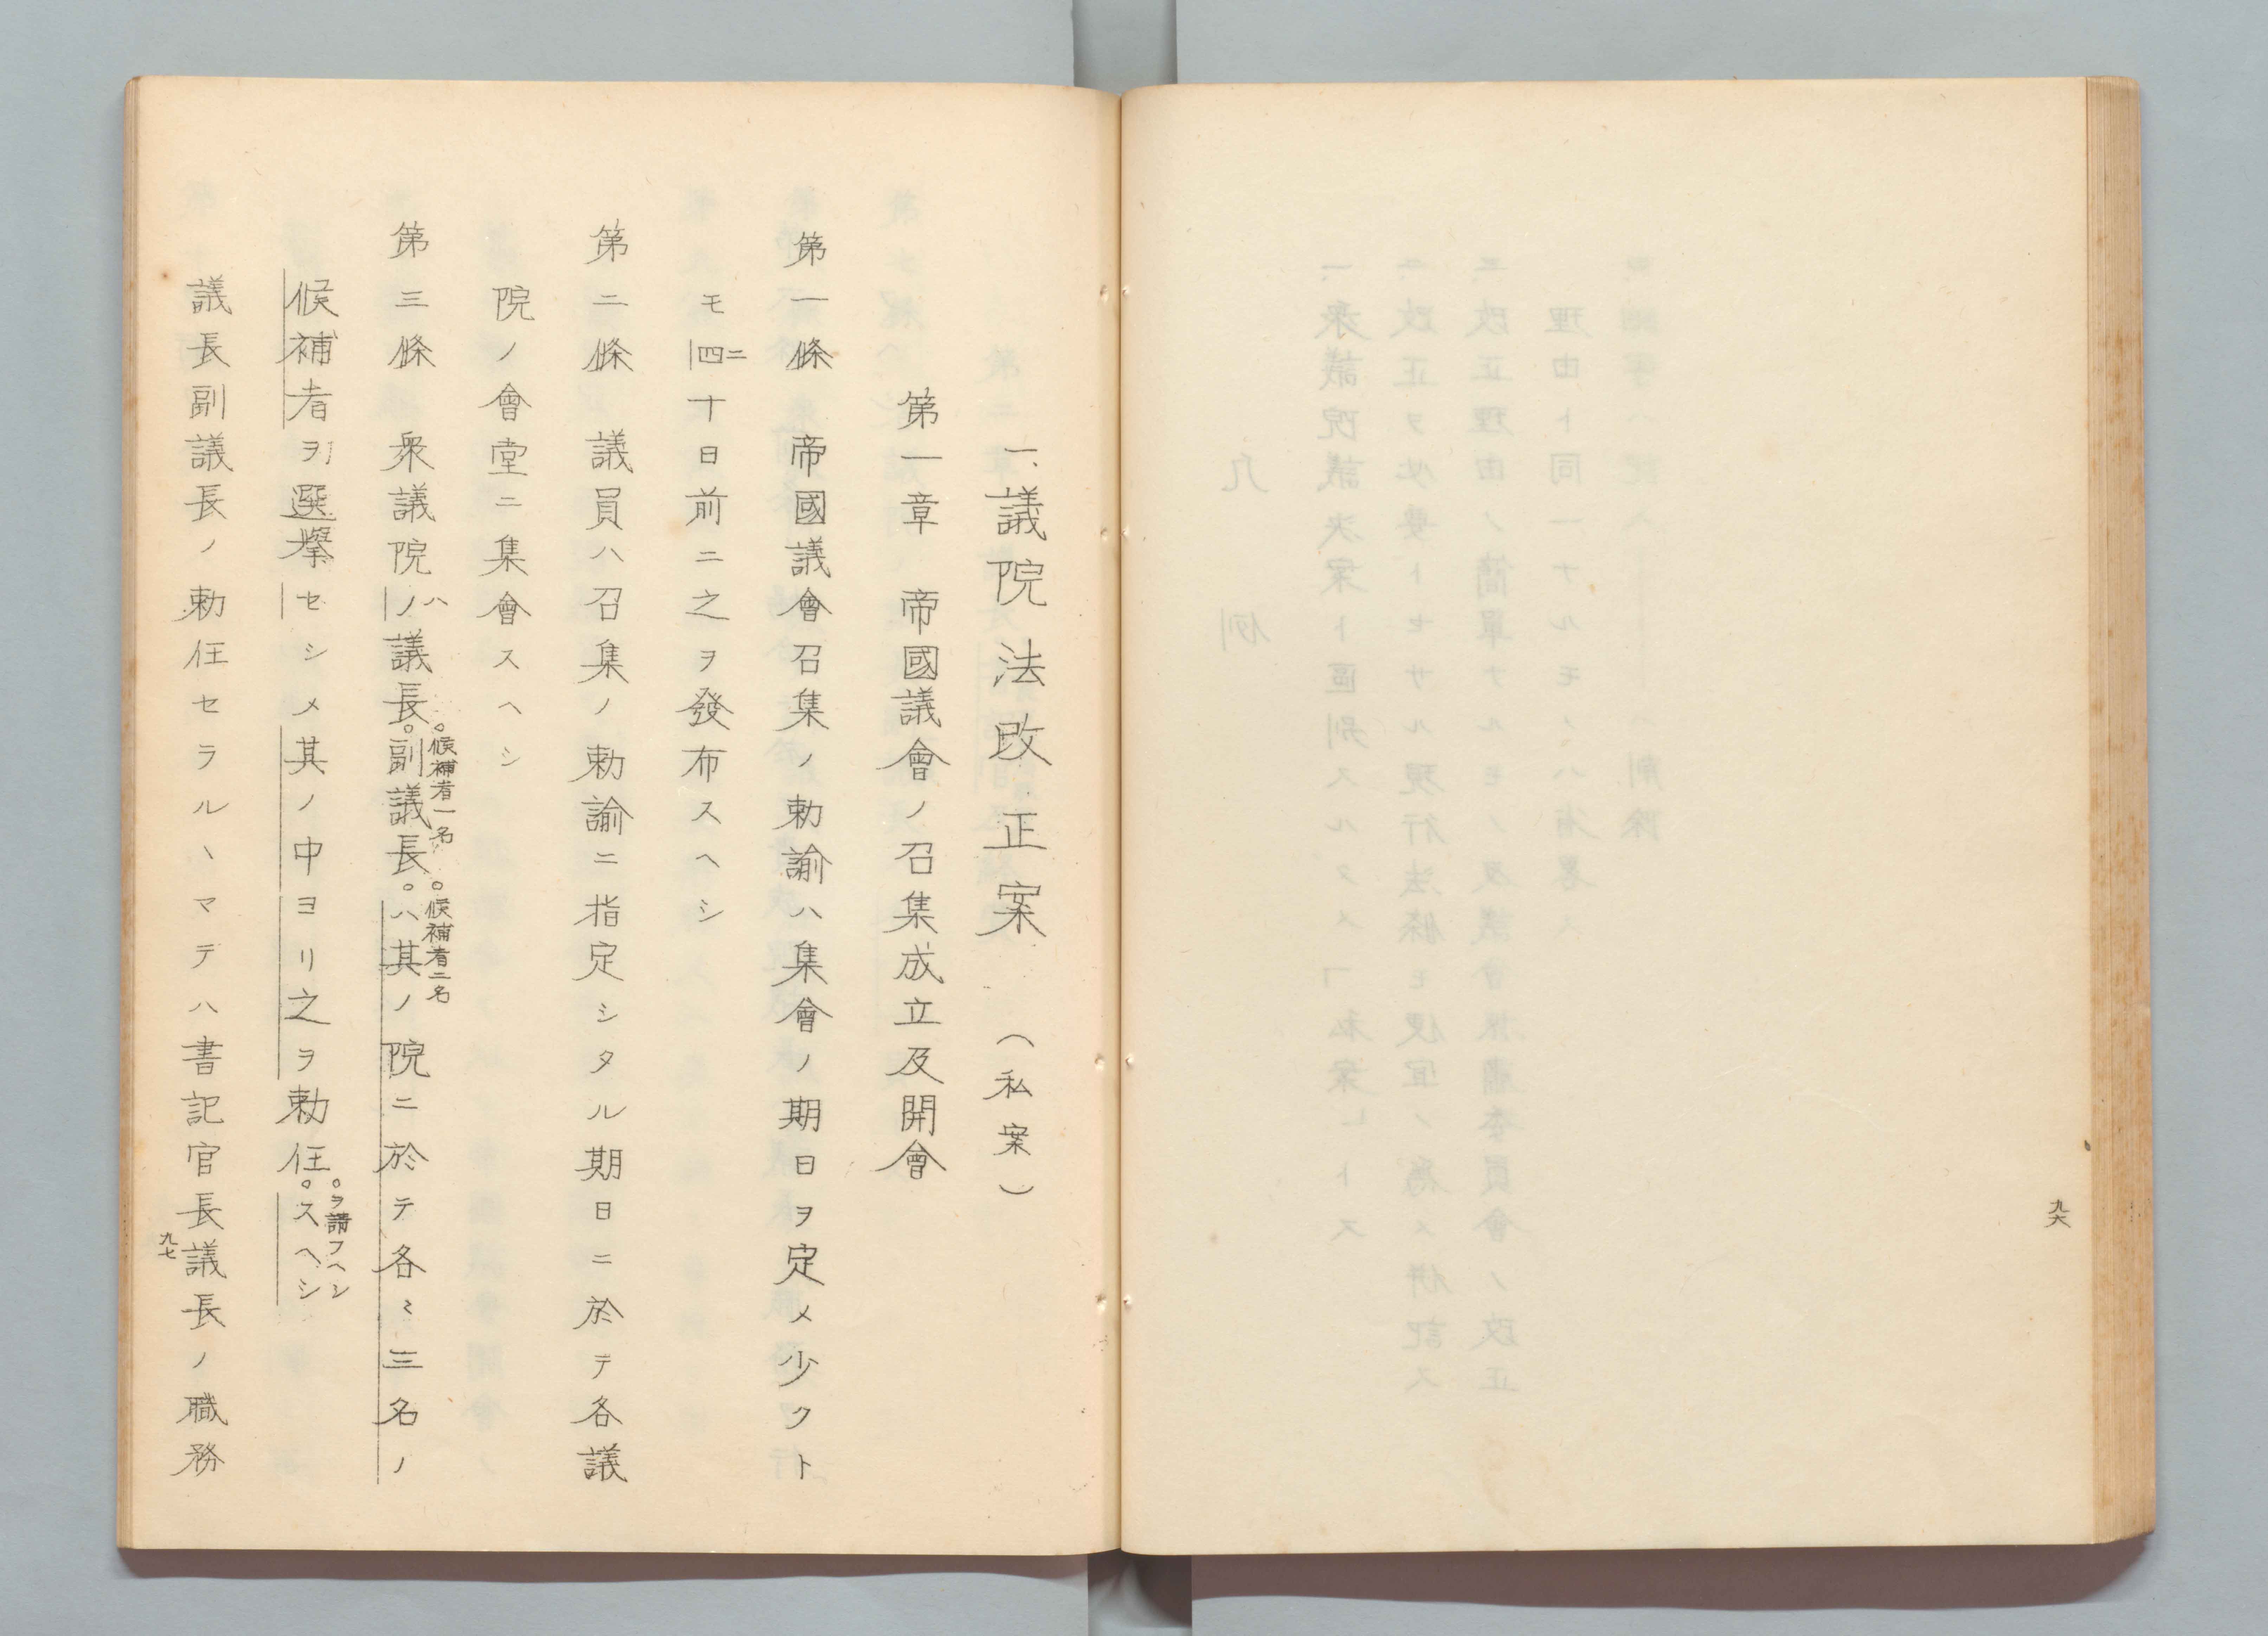 九六
一、議院法改正案（私案）
第一章　帝國議會ノ召集成立及開會
第一條　帝國議會召集ノ勅諭ハ集會ノ期日ヲ定メ少クト
モ四十日前ニ之ヲ發布スヘシ
ニ
第二條　議員ハ召集ノ勅諭ニ指定シタル期日ニ於テ各議
院ノ會堂ニ集會スヘシ
第三條　衆議院ノ議長。副議長。ハ其ノ院ニ於テ各〻三名ノ
ハ
。候補者一名
。候補者二名
候補者ヲ選擧セシメ其ノ中ヨリ之ヲ勅任。スヘシ
。ヲ請フヘシ
議長副議長ノ勅任セラルヽマテハ書記官長議長ノ職務
九七